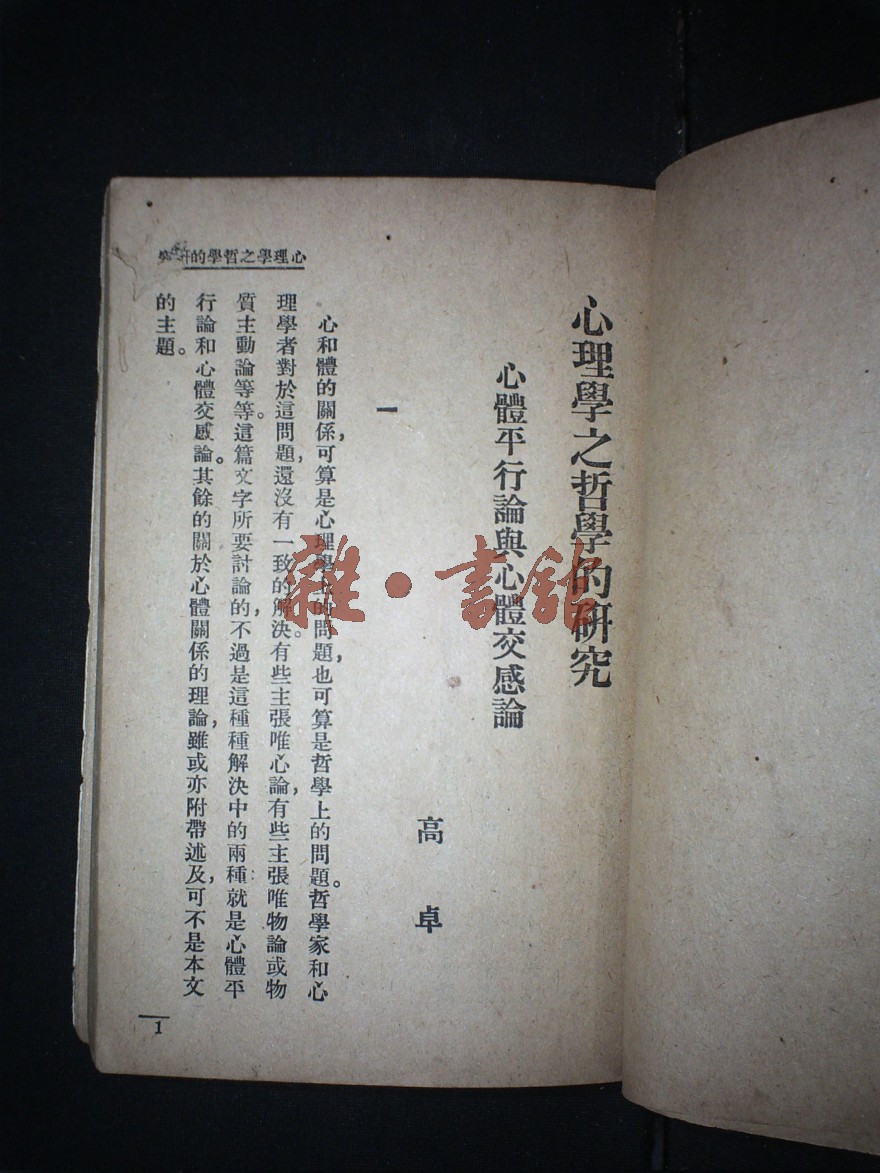 心理學之哲學的研究
心體平行論與心體交感論
高卓
一
心和體的關係，可算是心理學上的問題，也可算是哲學上的問題。哲學家和心
理學者對於這問題，還沒有一致的解決。有些主張唯心論，有些主張唯物論或物
質主動論等等。這篇文字所要討論的，不過是這種種解決中的兩種：就是心體平
行論和心體交感論。其餘的關於心體關係的理論，雖或亦附帶述及，可不是本文
的主題。
心理學之哲學的研究
1
雜·書館